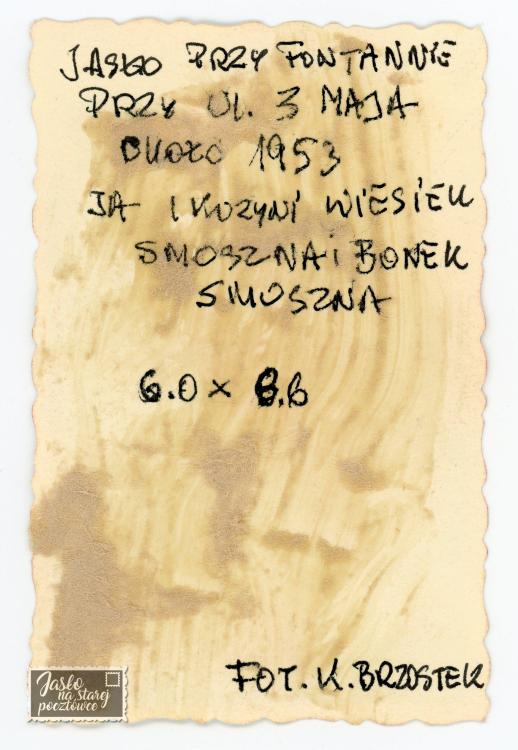 JASŁO PRZY FONTANNIE
PRZY UL. 3 MAJA
OKOŁO 1953
JA I KUZYNI WIESIEK
SMOSZNA I BONEK
SMOSZNA
6.0 x 8.6
FOT. K. BRZOSTEK
Jasło
na starej
pocztówce